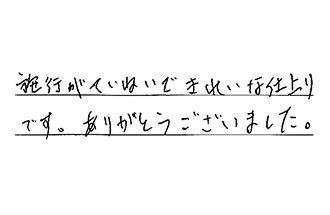 施行がていねいできれいな仕上り
です。ありがとうございました。